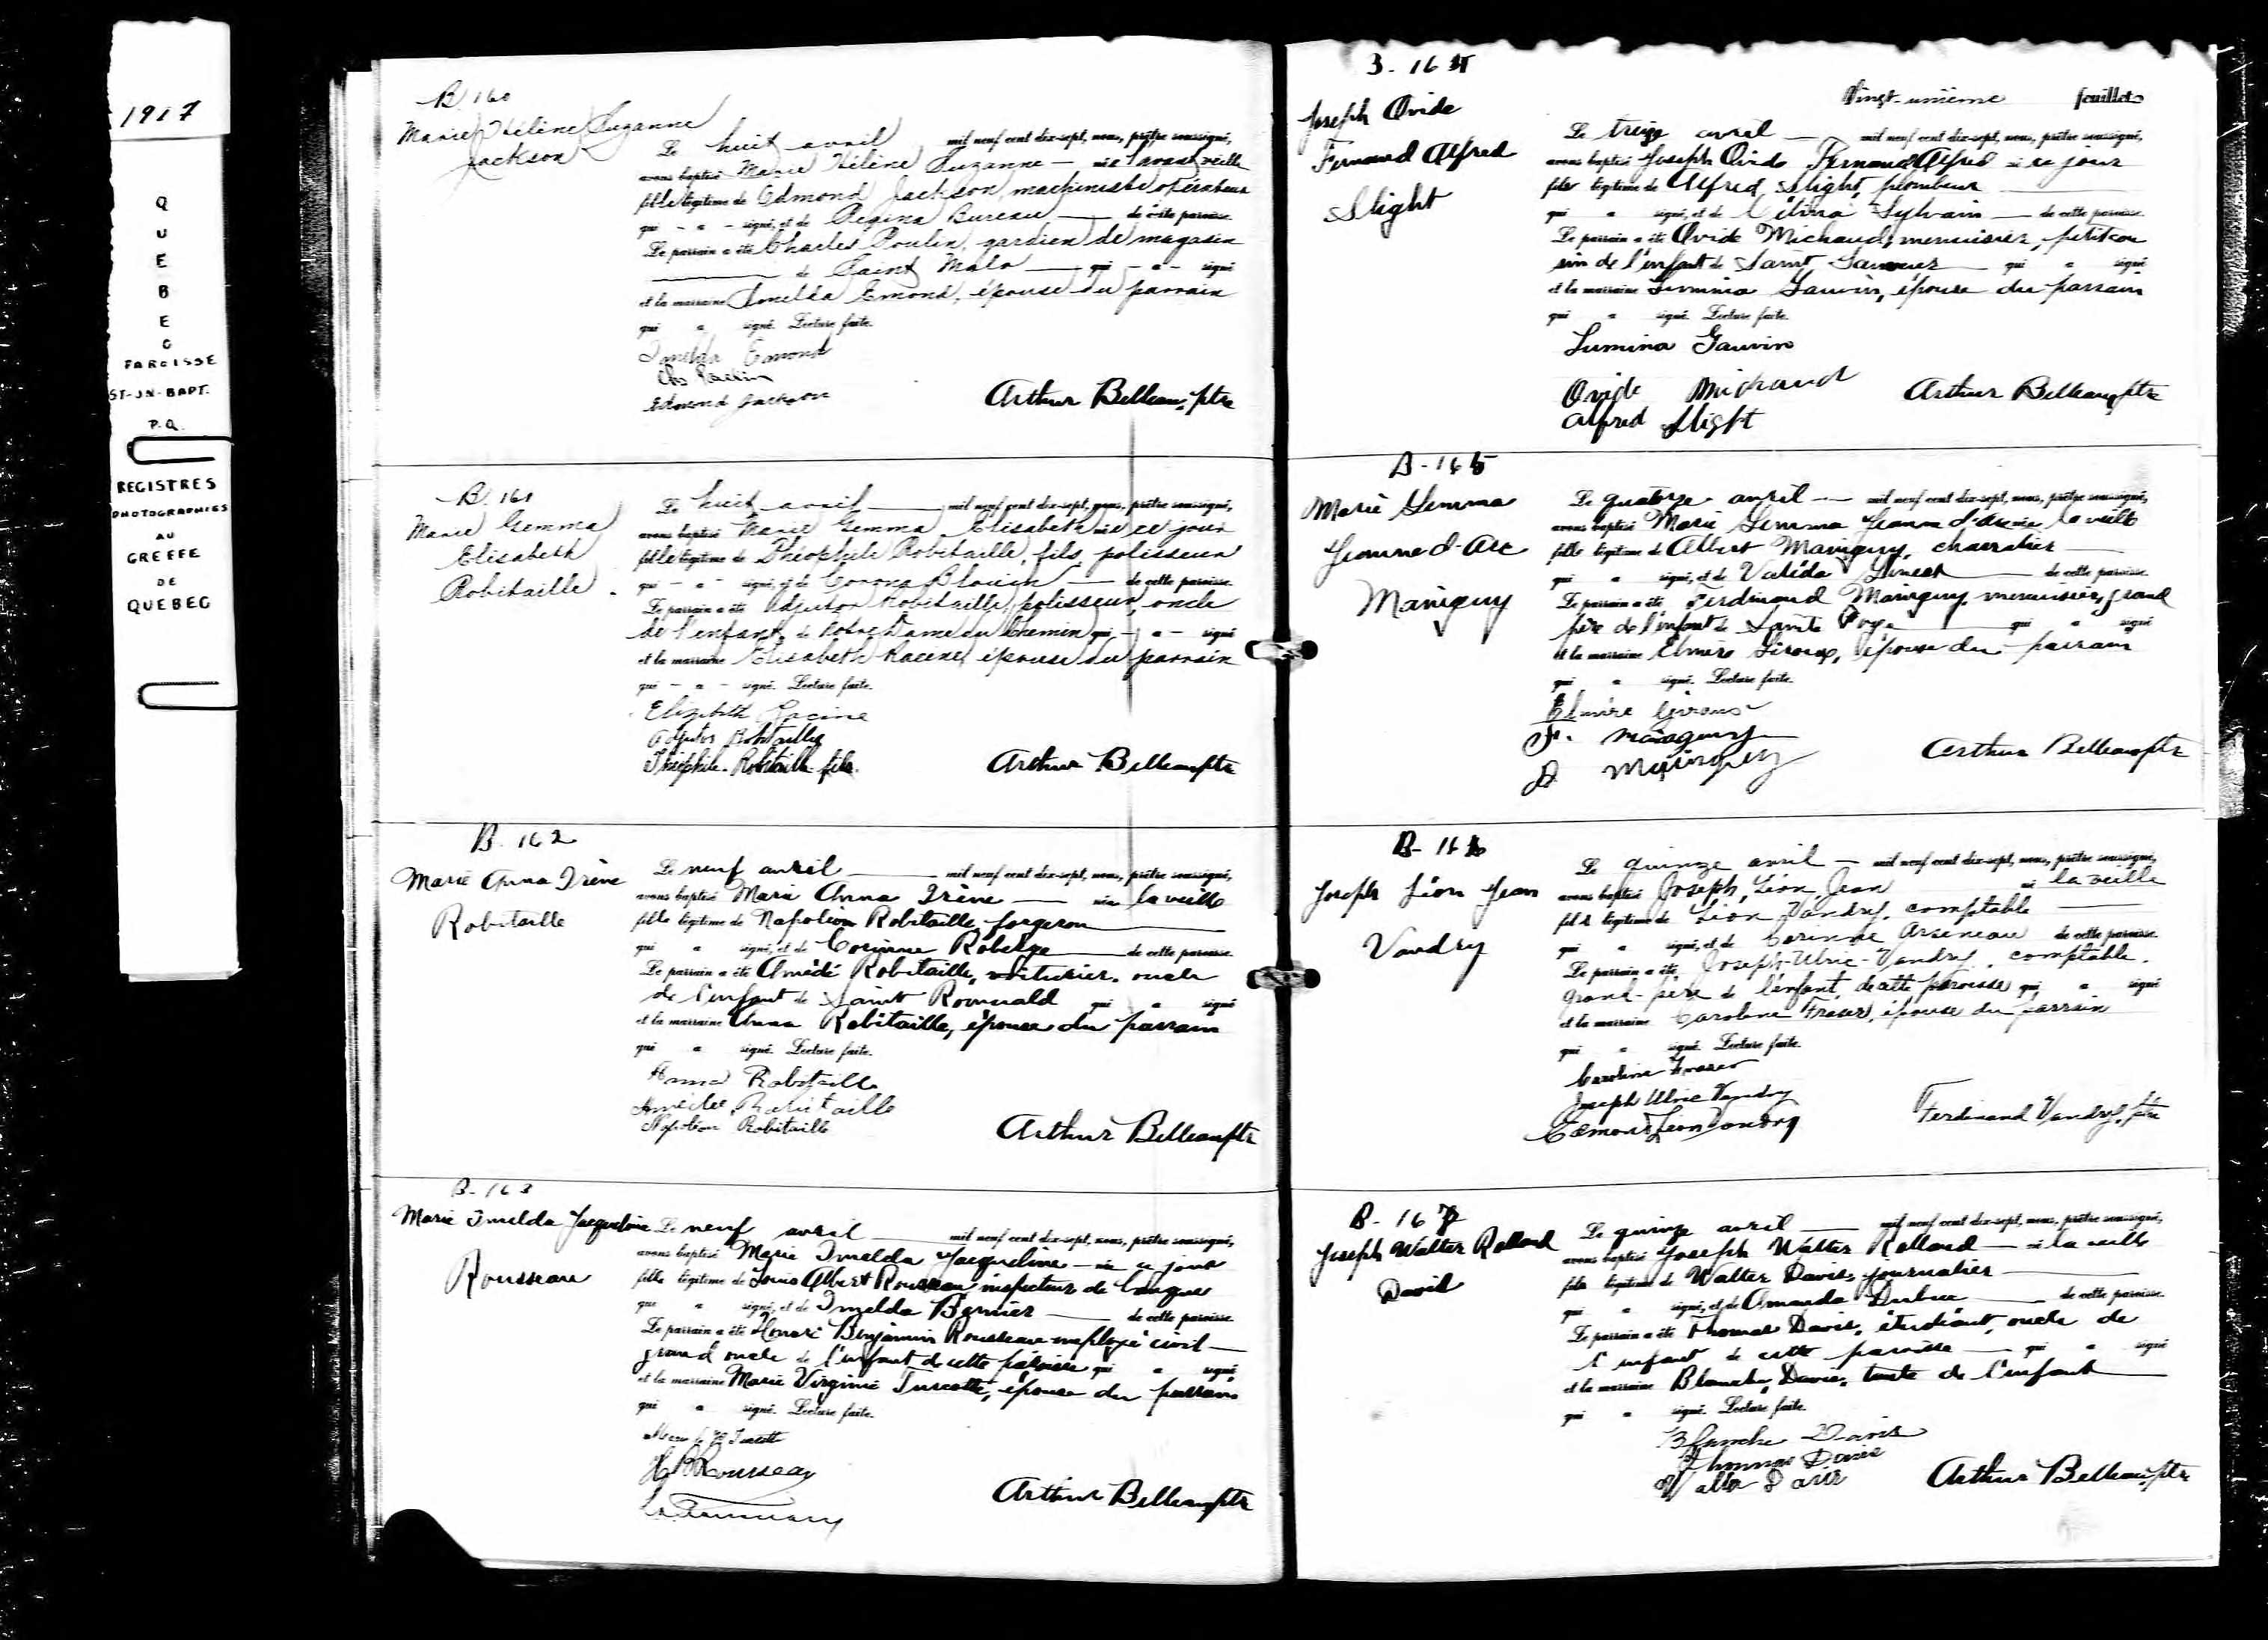 1917
QUEBEC
PAROISSE
ST-JN-BAPT.
P.Q.
REGISTRES
PHOTOGRAPHIES
AU
GREFFE
DE
QUEBEC
B 160
Marie Hélène Suzanne
Jackson
Le huit avril mil neuf cent dix-sept, nous, prêtre soussigné,
avons baptisé Marie Hélène Suzanne née l'avant veille
fille légitime de Edmond Jackson, machiniste opérateur
qui - a - signé, et de Régina Bureau de cette paroisse.
Le parrain a été Charles Poulin, gardien de magasin
de Saint Malo qui - a - signé
et la marraine Imelda Emond, épouse du parrain
qui a signé. Lecture faite.
Imelda Emond
Chs Poulin
Edmond Jackson
Arthur Belleau, ptre
B. 161
Marie Gemma
Elisabeth
Robitaille
Le huit avril mil neuf cent dix-sept, nous, prêtre soussigné,
avons baptisé Marie Gemma Elisabeth née ce jour
fille légitime de Théophile Robitaille, fils, polisseur
qui - a - signé, et de Corona Blouin de cette paroisse.
Le parrain a été Adjutor Robitaille, polisseur, oncle
de l'enfant, de Notre Dame du Chemin qui - a - signé
et la marraine Elisabeth Racine, épouse du parrain
qui - a - signé. Lecture faite.
Elizabeth Racine
Adjutor Robitaille
Théophile Robitaille fils.
Arthur Belleau ptre
B. 162
Marie Anna Irène
Robitaille
Le neuf avril mil neuf cent dix-sept, nous, prêtre soussigné,
avons baptisé Marie Anna Irène née la veille
fille légitime de Napoléon Robitaille, forgeron
qui a signé, et de Corinne Roberge de cette paroisse.
Le parrain a été Amédé Robitaille, voiturier, oncle
de l'enfant de Saint Romuald qui a signé
et la marraine Anna Robitaille, épouse du parrain
qui a signé. Lecture faite.
Anna Robitaille
Amédée Robitaille
Napoléon Robitaille
Arthur Belleau ptre
B. 163
Marie Imelda Jacqueline
Rousseau
Le neuf avril mil neuf cent dix-sept, nous, prêtre soussigné,
avons baptisé Marie Imelda Jacqueline née ce jour
fille légitime de Louis Albert Rousseau inspecteur de banques
qui a signé, et de Imelda Bernier de cette paroisse.
Le parrain a été Honoré Benjamin Rousseau employé civil
grand oncle de l'enfant de cette paroisse qui a signé
et la marraine Marie Virginie Turcotte, épouse du parrain
qui a signé. Lecture faite.
Turcotte
H B Rousseau
Arthur Belleau ptre
B. 164
Joseph Ovide
Fernand Alfred
Slight
Vingt-unième feuillet
Le treize avril mil neuf cent dix-sept, nous, prêtre soussigné,
avons baptisé Joseph Ovide Fernand Alfred né ce jour
fils légitime de Alfred Slight, plombeur
qui a signé, et de Célina Sylvain de cette paroisse.
Le parrain a été Ovide Michaud, menuisier, petit cou
sin de l'enfant de Saint Sauveur qui a signé
et la marraine Lumina Gauvin, épouse du parrain
qui a signé. Lecture faite.
Lumina Gauvin
Ovide Michaud
Alfred Slight
Arthur Belleau ptre
B-165
Marie Gemma
Jeanne d'Arc
Maringuy
Le quatorze avril mil neuf cent dix-sept, nous, prêtre soussigné,
avons baptisé Marie Gemma Jeanne d'Arc née la veille
fille légitime de Albert Maringuy, charretier
qui a signé, et de Valéda de cette paroisse.
Le parrain a été Ferdinand Maringuy, menuisier, grand
père de l'enfant de Sainte Foye qui a signé
et la marraine Elmire Giroux, épouse du parrain
qui a signé. Lecture faite.
Elmire Giroux
F. Maringuy
A Maringuy
Arthur Belleau ptre
B-166
Joseph Léon Jean
Vandry
Le quinze avril mil neuf cent dix-sept, nous, prêtre soussigné,
avons baptisé Joseph, Léon, Jean né la veille
fils légitime de Léon Vandry, comptable
qui a signé, et de Corinne Arseneau de cette paroisse.
Le parrain a été Joseph-Ulric-Vandry, comptable,
grand-père de l'enfant, de cette paroisse qui a signé
et la marraine Caroline Fraser, épouse du parrain
qui a signé. Lecture faite.
Caroline Fraser
Joseph Ulric Vandry
Edmond Léon Vandry
Ferdinand Vandry, ptre
B-167
Joseph Walter Rolland
David
Le quinze avril mil neuf cent dix-sept, nous, prêtre soussigné,
avons baptisé Joseph Walter Rolland né la veille
fils légitime de Walter Davis, journalier
qui a signé, et de Amanda Dubuc de cette paroisse.
Le parrain a été Thomas Davis, étudiant, oncle de
l'enfant de cette paroisse qui a signé
et la marraine Blanche Davis, tante de l'enfant
qui a signé. Lecture faite.
Blanche Davis
Thomas Davis
Walter Davis
Arthur Belleau, ptre